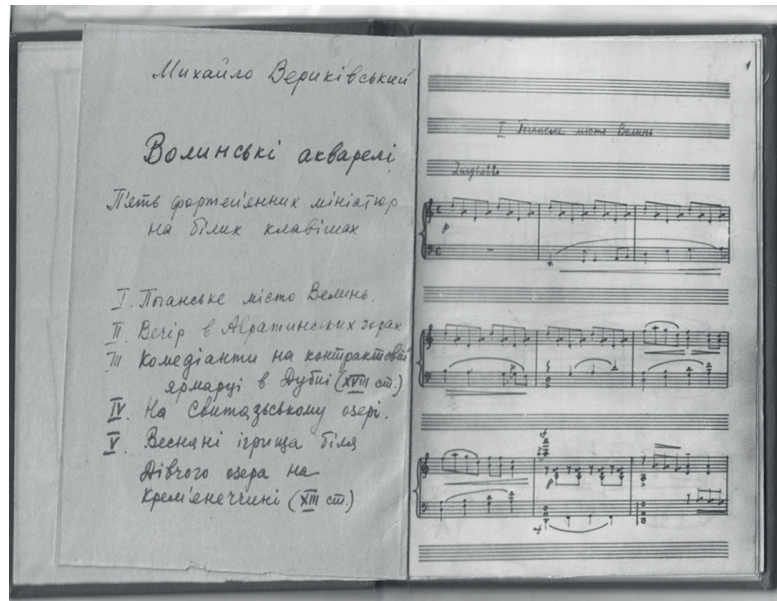 Михайло Вериківський
Волинські акварелі
П'ять фортеп'янних мініатюр
на білих клавішах
I. Поганське місто Велинь.
II. Вечір в Авратинських горах
III Комедіанти на контрактовій
ярмарці в Дубні (XVIII ст.)
IV. На Свитазьському озері.
V. Весняні ігрища біля
Дівчого озера на
Крем'янеччині (XIII ст.)
1
I Поганське місто Велинь
Larghetto
p
p
sf